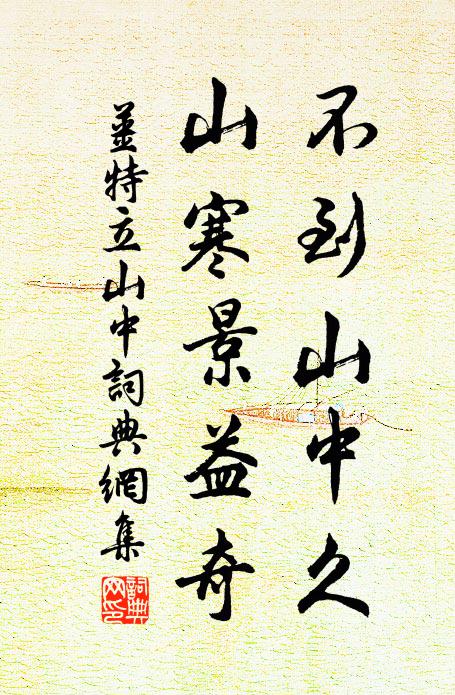 不到山中久
山寒景益奇
姜特立山中詞典網集
詞典網印